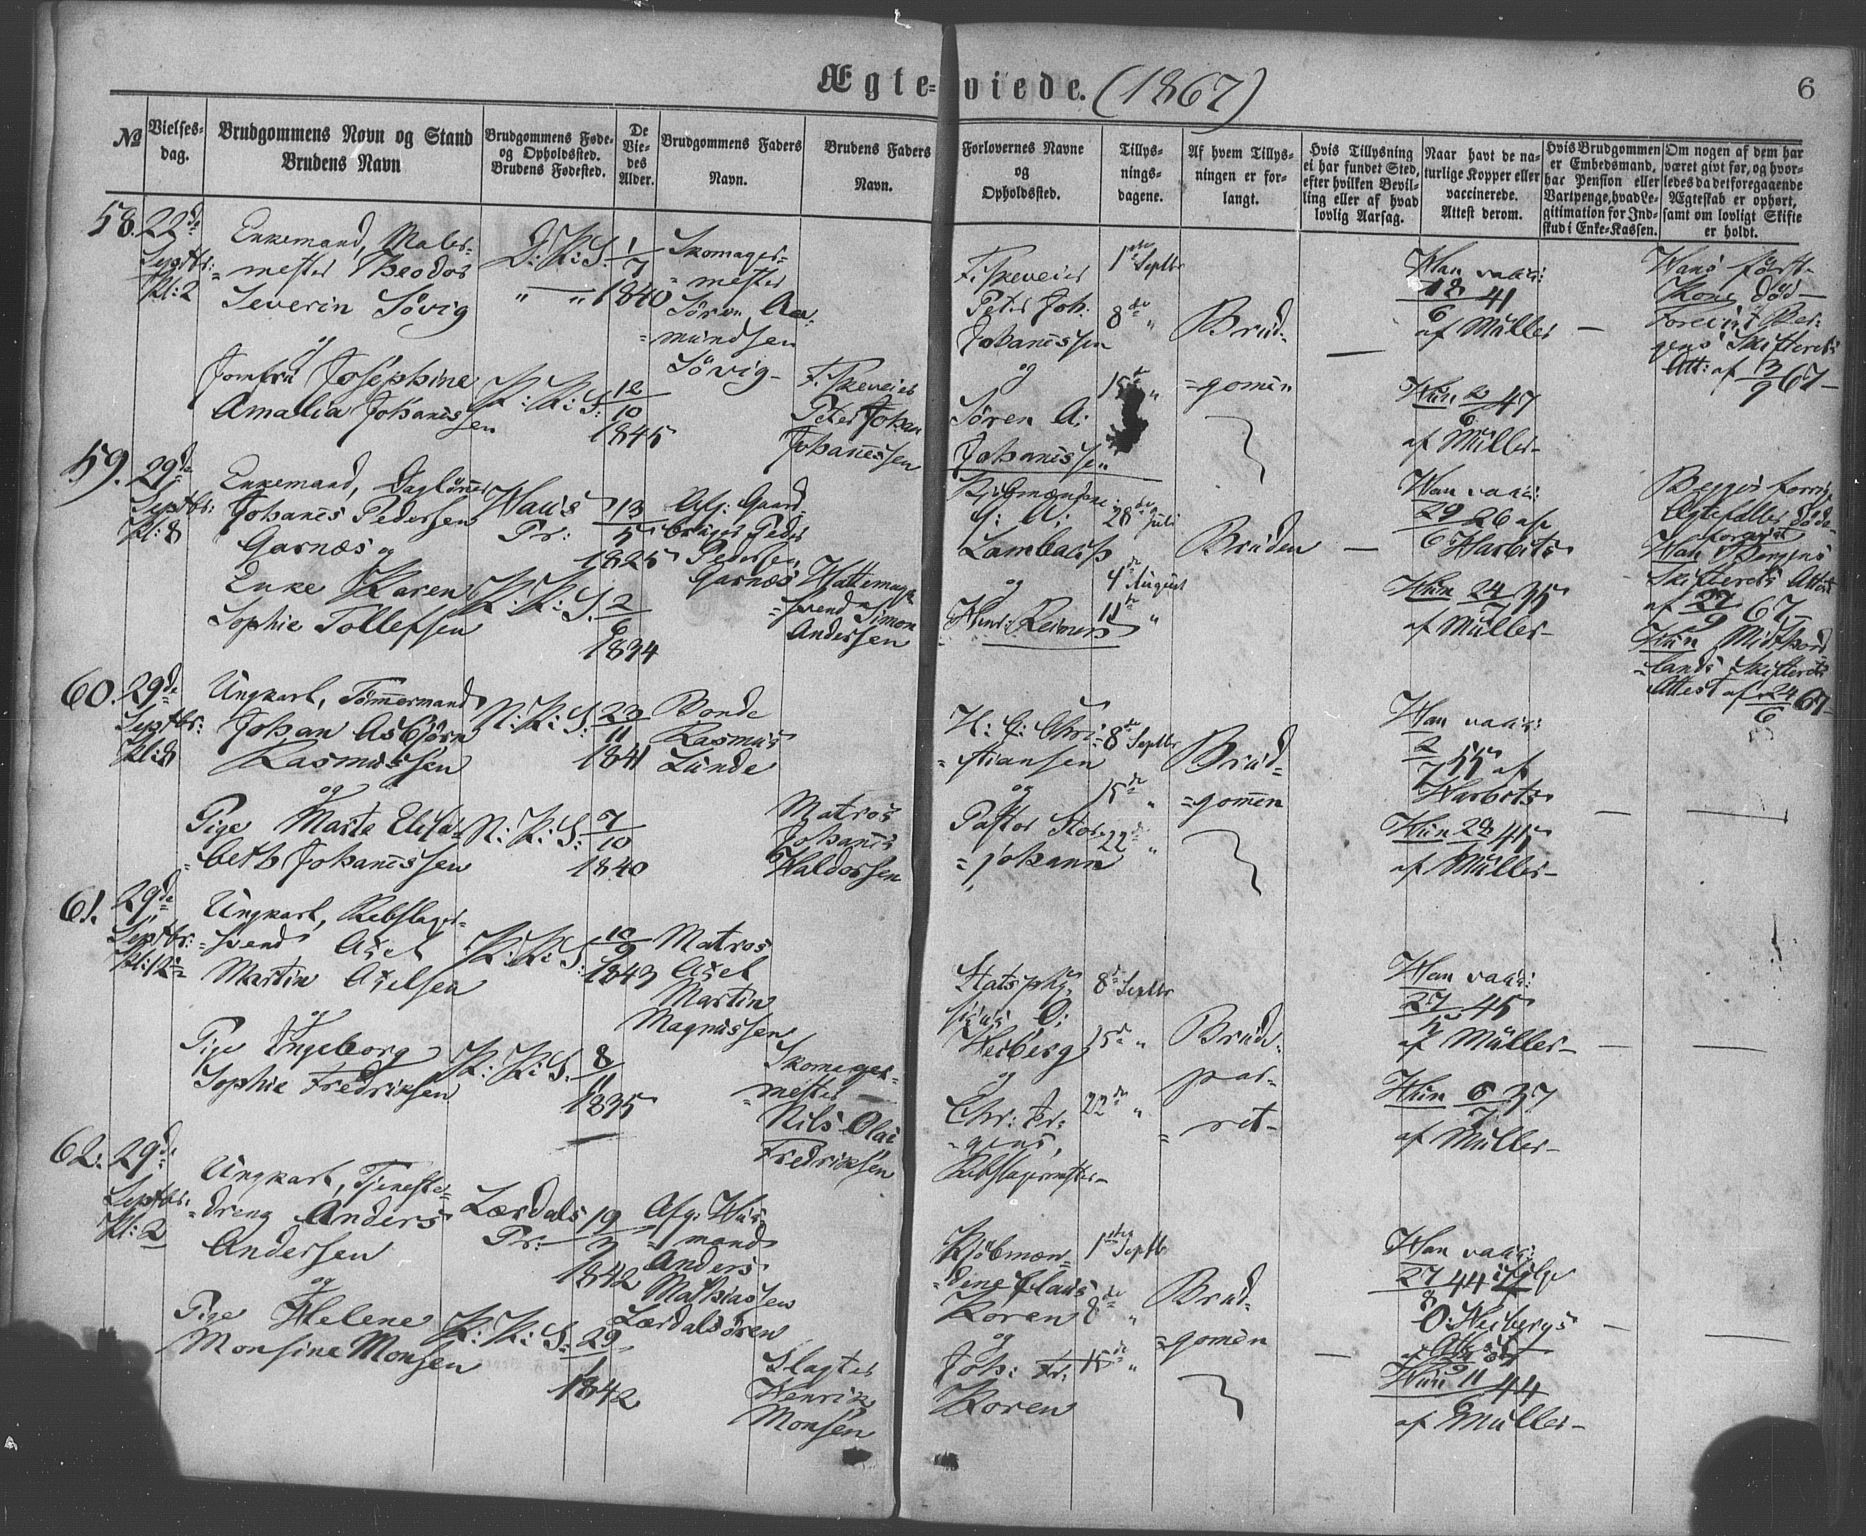 Ægte-viede. (1867)
6
No
Vielses-
dag.
Brudgommens Navn og Stand
Brudens Navn
Brudgommens Føde-
og Opholdssted.
Brudens Fødested.
De
Vie-
des
Alder.
Brudgommens Faders
Navn.
Brudens Faders
Navn.
Forlovernes Navne
og
Opholdssted.
Tillys-
nings-
dagene.
Af hvem Tillys-
ningen er for-
langt.
Hvis Tillysning
ei har fundet Sted,
efter hvilken Bevil-
ling eller af hvad
lovlig Aarsag.
Naar havt de na-
turlige Kopper eller
vaccinerede.
Attest derom.
Hvis Brudgommen
er Embedsmand,
har Pension eller
Vartpenge, hvad Le-
gitimation for Ind-
skud i Enke-Kassen.
Om nogen af dem har
været givt før, og hvor-
ledes da det foregaaende
Ægteskab er ophørt,
samt om lovligt Skifte
er holdt.
58. 22de
Septbr:
Kl: 2
Enkemand, Maler-
mester Theodor
Severin Søvig
og
Jomfru Josephine
Amalia Johanessen
D: K: S: 1/7 1840
K: K: S: 12/10 1845
Skomager-
mester
Sören Aa-
mundsen
Søvig
Peter Johan
Johanessen
Peter Joh.
Johanessen
og
Sören A:
Johanessen
1ste Septbr
8de "
15de "
Brud-
gomen
Han vacc:
18/6 41
af Müller
Hun 2/6 47
af Müller
Hans først-
Kone død
Foreviist Ber-
gens Skifterets
Att: af 13/9 67
59. 29de
Septbr:
Kl: 8
Enkemand, Dagløner
Johanes Pedersen
Garnæs og
Enke Karen
Sophie Tollefsen
Haus
Pr:
13/5 1825
K: K: S. 2/6 1834
Afg: Gaard-
bruger Peder
Pedersen
Garnæs
Hattemager-
svend Simon
Andersen
og
28de Juli
4de August
11te "
Bruden
Han vacc:
29/6 26 af
Harbits
Hun 24/7 35
af Müller
Begges forrige
Ægtefæller døde
foreviist
Han Bergens
Skifterets Attest
af 27/9 67
Hun Midthord-
lands Skifterets
Attest af 24/6 67
60. 29de
Septbr:
Kl: 8
Ungkarl, Tømmermand
Johan Asbjørn
Rasmussen
og
Pige Marte Elisa-
beth Johanessen
N: K: S: 23/11 1841
N: K: S: 7/10 1840
Bonde
Rasmus
Lunde
Matros
Johanes
Haldorsen
H: C: Chri-
stiansen
og
Pastor Stor-
johann
8de Septbr
15de "
22de "
Brud-
gomen
Han vacc:
2/7 55 af
Harbits
Hun 28/7 45
af Müller
61. 29de
Septbr:
Ungkarl, Rebslager-
svend Axel
Martin Axelsen
og
Pige Ingeborg
Sophie Fredriksen
K: K: S: 10/9 1843
K: K: S. 8/11 1835
Matros
Axel
Martin
Magnussen
Skomager-
mester
Nils Olai
Fredriksen
Heiberg
og
Rebslagermester
8de Septbr
15de "
22de "
Brude-
par-
ret
Han vacc:
27/7 45
af Müller
Hun 6/7 37
af Müller
62. 29de
Septbr:
Kl: 2
Ungkarl, Tjeneste-
dreng Anders
Andersen
og
Pige Helene
Monsine Monsen
Lærdals
Pr:
19/3 1842
K: K: S: 29/1 1842
Afg: Hus-
mand
Anders
Mathiassen
Lærdalsören
Slagter
Henrik
Monsen
Kjöbmæn-
dene Claus
Koren
og
Joh: Fr.
Koren
1ste Septbr
8de "
15de "
Brud-
gomen
Han vacc:
27/8 44
O: Heibergs
Hun 11/6 44
af Müller